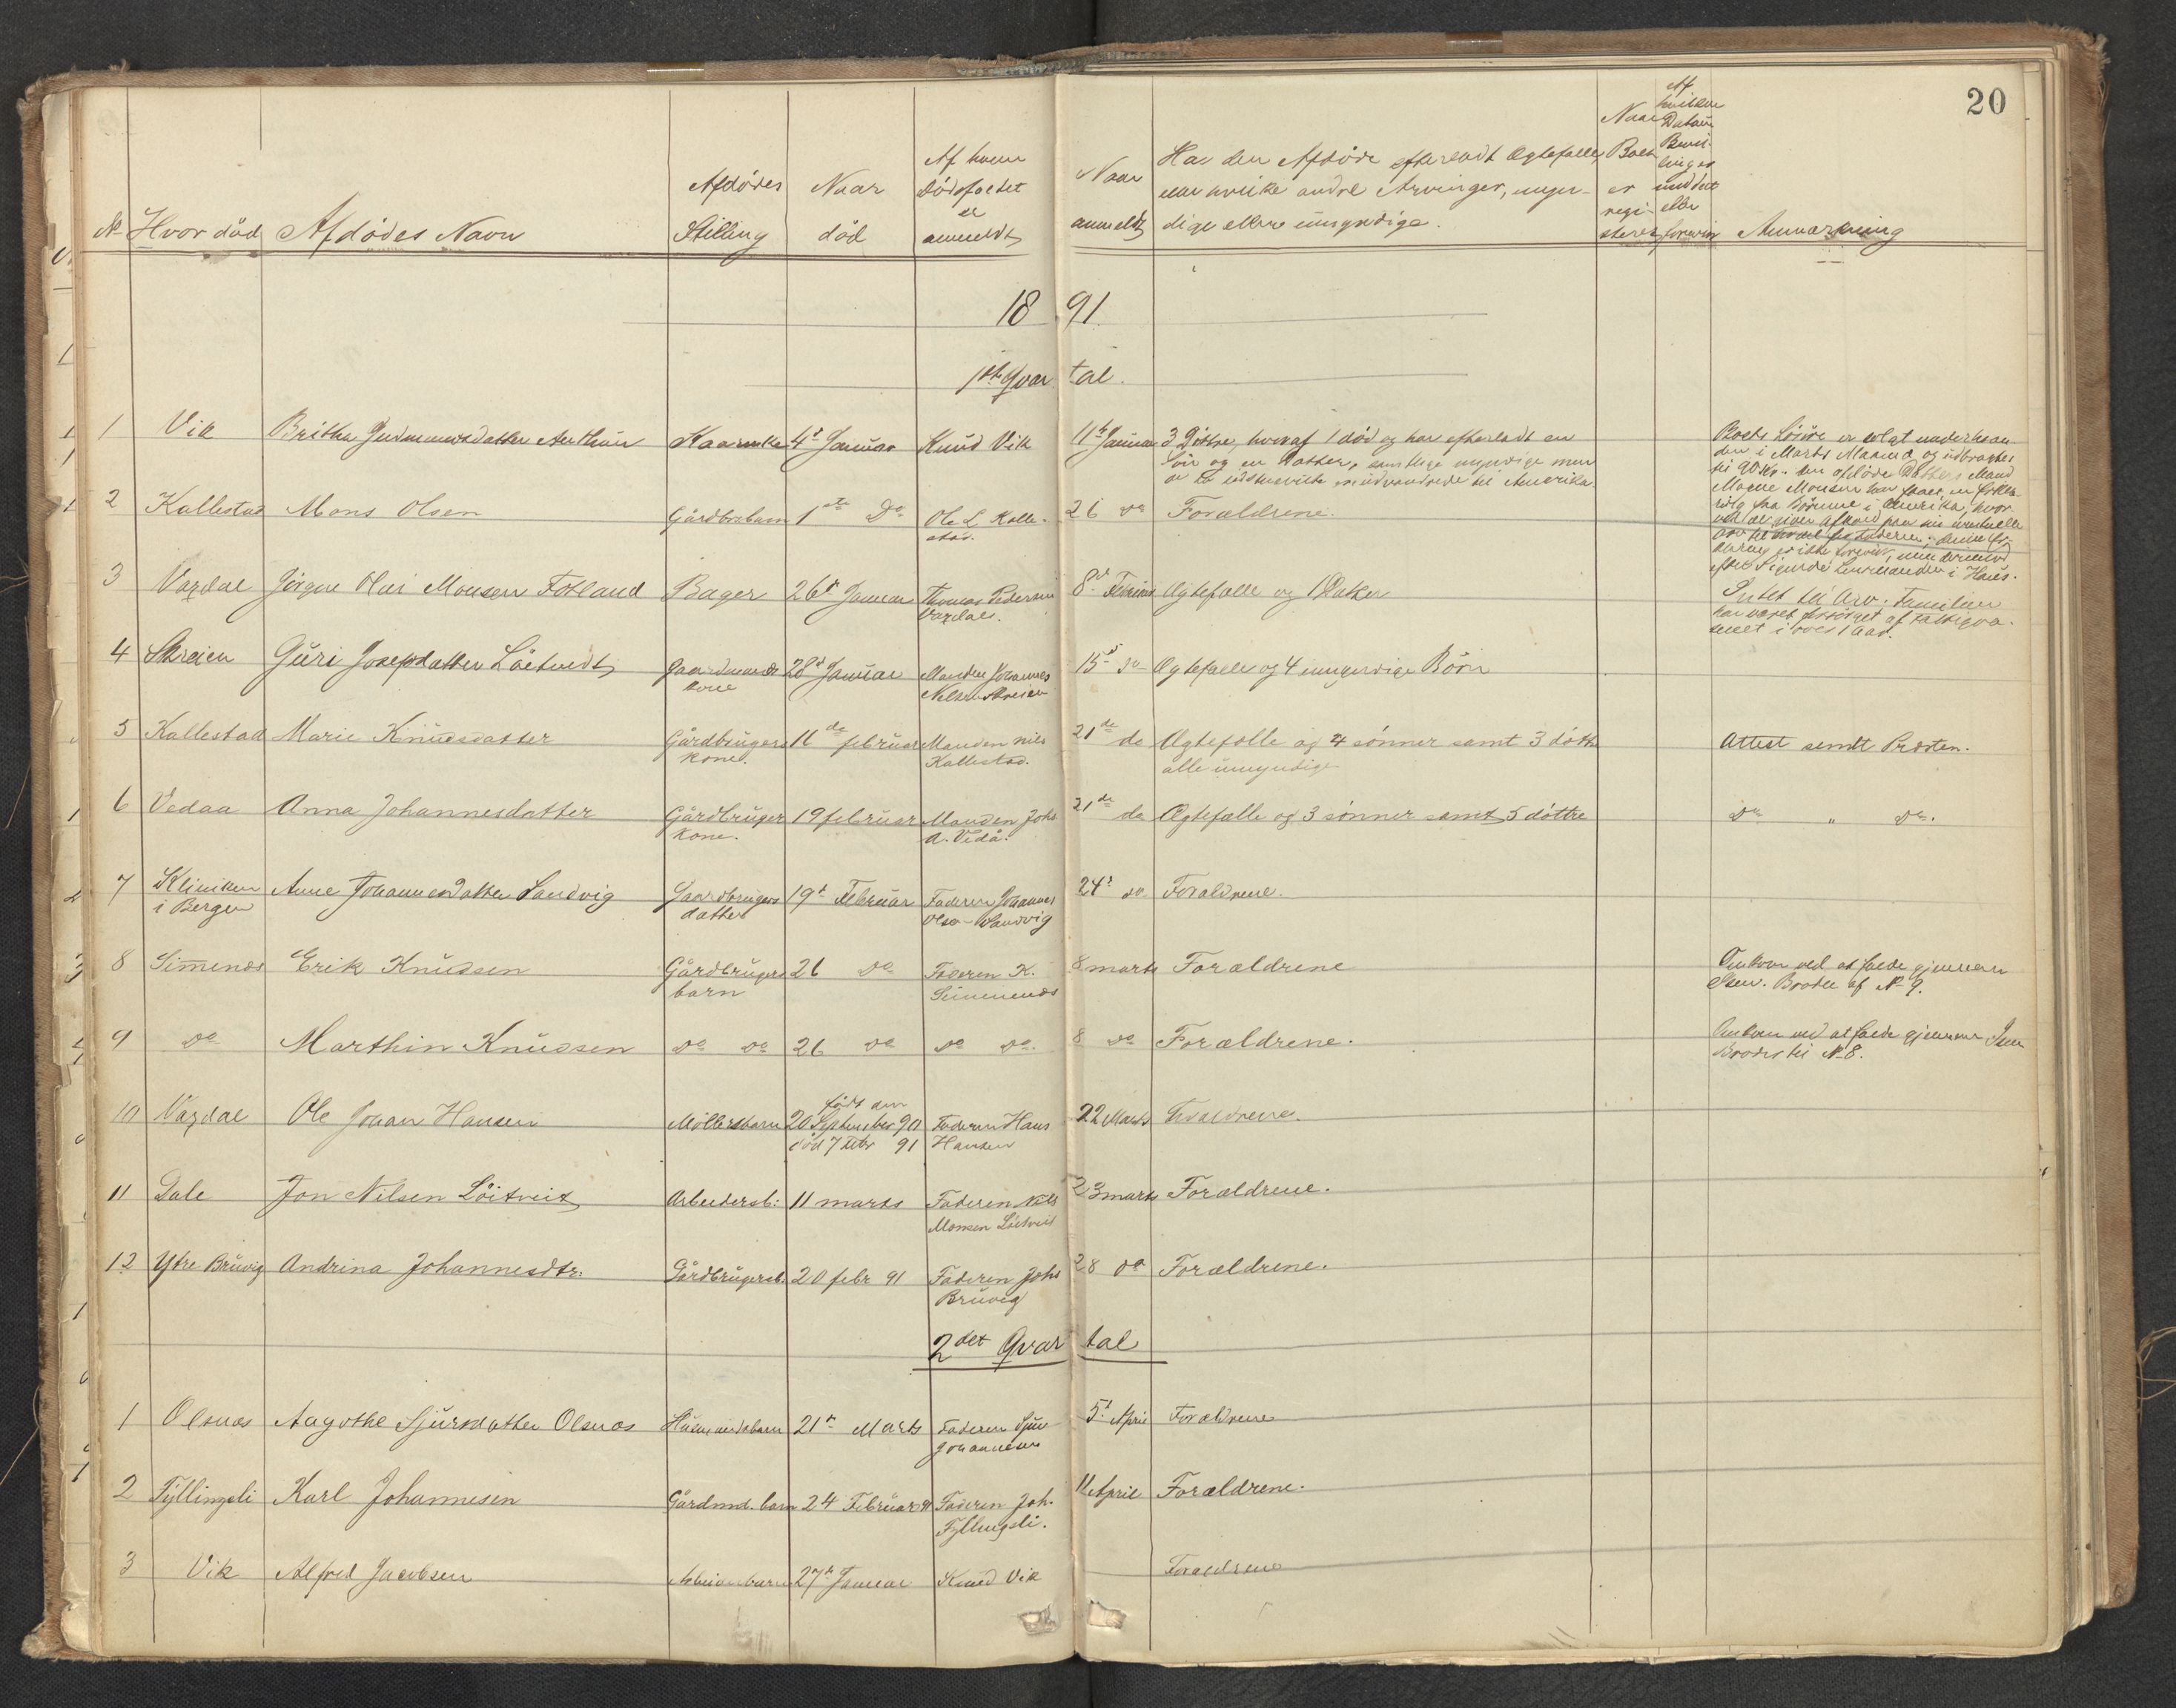 20
No Hvor död Afdödes Navn Afdödes Stilling Naar död Af hvem Dödsfaldet er anmeldt Naar anmeldt Har den Afdöde efterladt Ægtefælle,
eller hvilke andre Arvinger, myn-
dige eller umyndige. Naar Boet er regi- steret Af hvilken Datum Bevil- lingen meddelt eller Anmærkning
1891.
1ste Qvartal.
1 Vik Britha Gudmundsdatter 4d Januar Knud Vik 11te Januar 3 Döttre, hvoraf 1 död og har efterladt en
Sön og en Datter, samtlige myndige men
til Amerika
Boets Lösöre er solgt underhaan-
den i Marts Maaned og udbragtes
til 90 Kr. den afdöde Datters Mand
Mons Monsen har
fra Börnene i Amerika, hvor-
2 Kallestad Mons Olsen Gårdbrbarn 1ste Do Ole L Kalle-
stad. 26 do Forældrene.
3 Vaxdal Jörgen Olai Monsen Fotland Bager 26d Januar Thomas Pedersen
Vaxdal. 8d Februar Ægtefælle og 1 Datter
Intet til Arv. Familien
har været forsörget af Fattigvæ-
senet i over 1 Aar.
4 Skreien Guri Josepsdatter Löitveidt Gaardmands
kone 28d Januar Manden Johannes
Nilsen Skreien 15d do Ægtefælle og 4 umyndige Börn
5 Kallestad Marie Knudsdatter Gårdbrugers
kone. 11de februar Manden Nils
Kallestad. 21de do Ægtefælle og 4 sönner samt 3 döttr
alle umyndige Attest sendt Præsten.
6 Vedaa Anna Johannesdatter Gårdbruger
kone. 19 februar Manden Johs
A. Vedå. 21de do Ægtefælle og 3 sönner samt 5 döttre Do " Do.
7 Kliniken
i Bergen Anne Johannesdatter Sandvig Gaardbrugers
datter 19d Februar Faderen Johannes
Olsen Sandvig 24d do Forældrene.
8 Simenes Erik Knudsen Gårdbrugers
barn 26 Do Faderen K.
Simmenes 8 marts Forældrene Omkom ved at falde gjennem
Isen. Broder af No 9.
9 Do Marthin Knudsen Do Do 26 Do Do Do. 8 Do Forældrene. Omkom ved at falde gjennem Isen
Broder til No 8.
10 Vaxdal Ole Johan Hansen Möllersbarn födt den
20 September 90
död 7 Febr 91 Faderen Hans
Hansen 22 Marts Forældrene.
11 Dale Jon Nilsen Löitveit Arbeidersb: 11 marts Faderen Nils
Monsen Löitveit 23 marts Forældrene.
12 Ytre Bruvig Andrina Johannesdtr. Gårdbrugersb. 20 febr 91 Faderen Johs
Bruvig 28 do Forældrene.
2det Qvartal
1 Olsnes Aagothe Sjursdatter Olsnes Husmandsbarn 21de Marts Faderen Sjur
Johannesen 5d April Forældrene
2 Fyllingsli Karl Johannesen Gårdmd. barn 24 Februar 91 Faderen Joh.
Fyllingsli. 11 April Forældrene.
3 Vik Alfred Jacobsen 27de Januar Knud Vik Forældrene